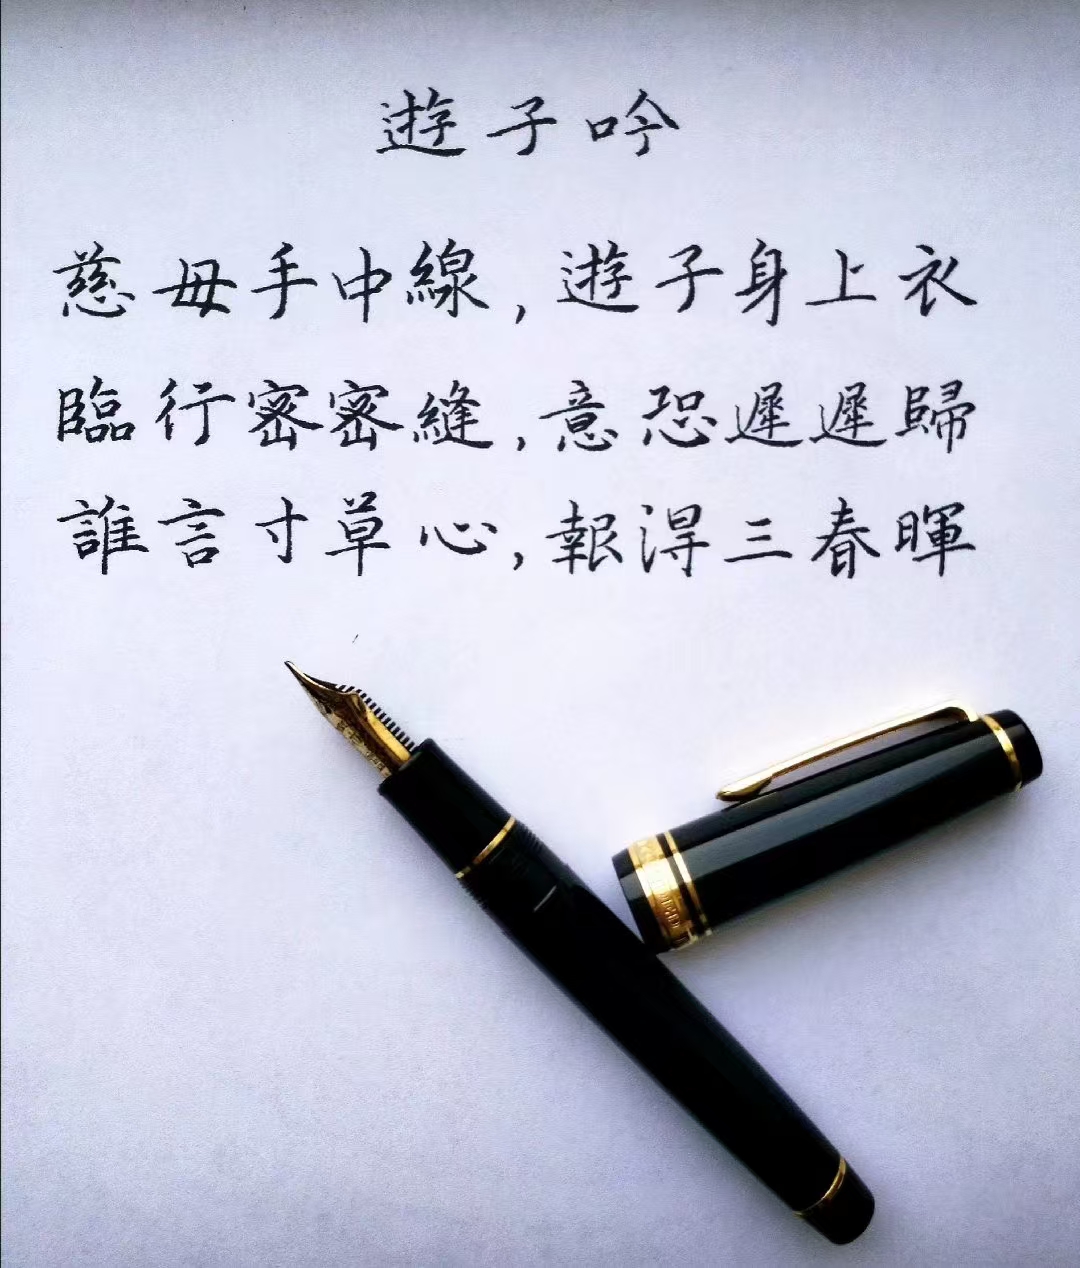 遊子吟
慈母手中線,遊子身上衣
臨行密密縫,意恐遲遲歸
誰言寸草心,報得三春暉